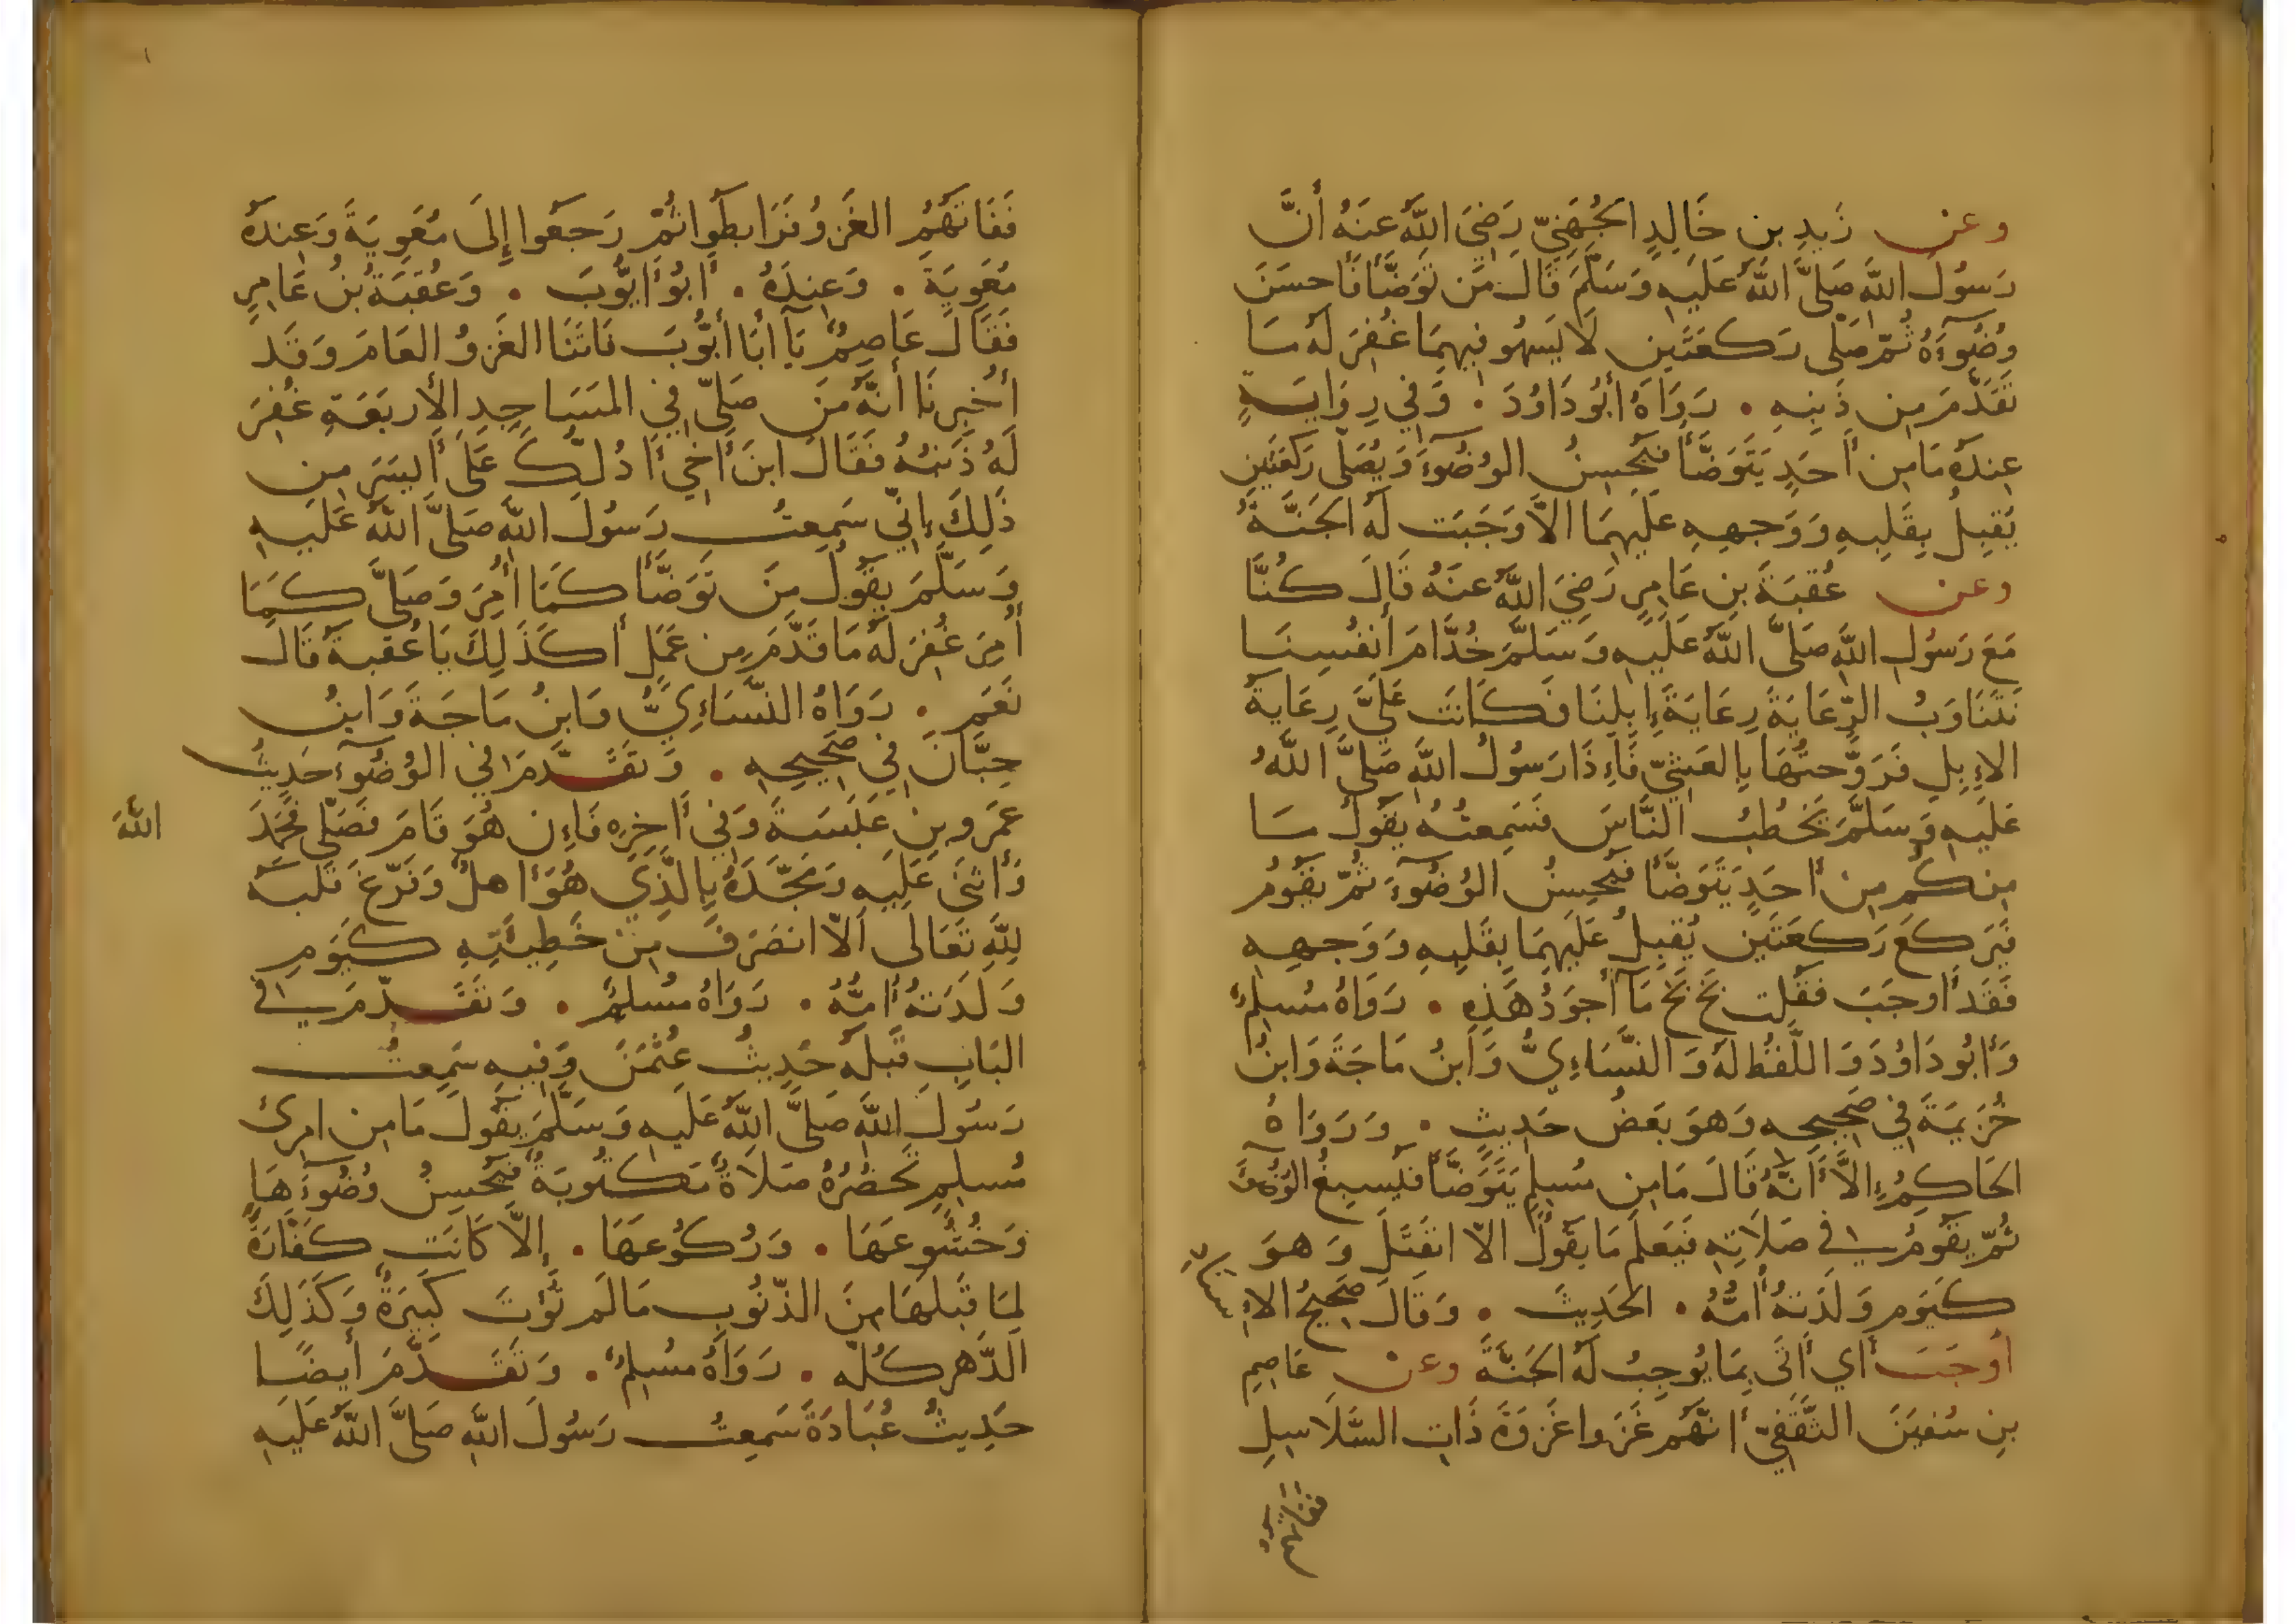 وعن زَيدِ بنِ خَالِدٍ الجُهَنِيِّ رَضِيَ اللَّهُ عَنهُ أَنَّ
رَسُولَ اللَّهِ صَلَّى اللَّهُ عَلَيهِ وَسَلَّمَ قَالَ مَن تَوَضَّأَ فَأَحسَنَ
وُضُوءَهُ ثُمَّ صَلَّى رَكعَتَينِ لَا يَسهُو فِيهِمَا غُفِرَ لَهُ مَا
تَقَدَّمَ مِن ذَنبِهِ . رَوَاهُ أَبُو دَاوُدَ . وَفِي رِوَايَةٍ
عِندَهُ مَا مِن أَحَدٍ يَتَوَضَّأُ فَيُحسِنُ الوُضُوءَ وَيُصَلِّي رَكعَتَينِ
يُقبِلُ بِقَلبِهِ وَوَجهِهِ عَلَيهِمَا إلاَّ وَجَبَت لَهُ الجَنَّةُ
وعن عُقبَةَ بنِ عَامِرٍ رَضِيَ اللَّهُ عنهُ قَالَ كُنَّا
مَعَ رَسُولِ اللَّهِ صَلَّى اللَّهُ عَلَيهِ وَسَلَّمَ خُدَّامَ أَنفُسِنَا
نَتَنَاوَبُ الرِّعَايَةَ رِعَايَةَ إِبِلِنَا فَكَانَت عَلَيَّ رِعَايَةُ
الإِبِلِ فَرَوَّحتُهَا بِالعَشِيِّ فَإِذَا رَسُولُ اللَّهِ صَلَّى اللَّهُ
عَلَيهِ وَسَلَّمَ يَخطُبُ النَّاسَ فَسَمِعتُهُ يَقُولُ مَا
مِنكُم مِن أَحَدٍ يَتَوَضَّأُ فَيُحسِنُ الوُضُوءَ ثُمَّ يَقُومُ
فَيَركَعَ رَكعَتَينِ يُقبِلُ عَلَيهِمَا بِقَلبِهِ وَوَجهِهِ
فَقَد أَوجَبَ فَقُلت بَخ بَخ مَا أَجوَدُ هَذِهِ . رَوَاهُ مُسلِمٌ
وَأَبُو دَاوُدَ وَاللَّفظُ لَهُ وَالنَّسَاءِيُّ وَابنُ مَاجَةَ وَابنُ
خُزَيمَةَ فِي صَحِيحِهِ وَهوَ بَعضُ حَدِيثٍ . وَرَوَاهُ
الحَاكِمُ إِلاَّ أَنَّهُ قَالَ مَا مِن مُسلِمٍ يَتَوَضَّأُ فَيُسبِغُ الوُضُوءَ
ثُمَّ يَقُومُ فِي صَلَاتِهِ فَيَعلَمُ مَا يَقُولُ إلاّ انفَتَلَ وَهوَ
كَيَومِ وَلَدَتهُ أُمُّهُ . الحَدِيثَ . وَقَالَ صَحِيحُ الإِ
سنَادِ
أَوجَبَ أي أَتَى بِمَا يُوجِبُ لَهُ الجَنَّةَ وعن عَاصِمِ
بنِ سُفيَنَ الثَّقَفِيِّ أَنَّهُم غَزَوا غَزوَةَ ذَاتِ السَّلَاسِلِ
فَفَاتَهُمُ
فَفَاتَهُمُ الغَزوُ فَرَابَطُوا ثُمَّ رَجَعُوا إِلَى مُعَوِيَةَ وَعِندَهُ
مُعَوِيَةَ . وَعِندَهُ . أَبُو أَيُّوبَ . وَعُقبَةُ بنُ عَامِرٍ
فَقَالَ عَاصِمٌ يَا أَبَا أَيُّوبَ فَاتَنَا الغَزوُ العَامَ وَقَد
أُخبِرنَا أَنَّهُ مَن صَلَّى فِي المَسَاجِدِ الأَربَعَةِ غُفِرَ
لَهُ ذَنبُهُ فَقَالَ ابنَ أَخِي أَدُلُّكَ عَلَى أَيسَرَ مِن
ذَلِكَ إِنِّي سَمِعتُ رَسُولَ اللَّهِ صَلَّى اللَّهُ عَلَيهِ
وَسَلَّمَ يَقُولُ مَن تَوَضَّأَ كَمَا أُمِرَ وَصَلَّى كَمَا
أُمِرَ غُفِرَ لَهُ مَا قَدَّمَ مِن عَمَلٍ أَكَذَلِكَ يَا عُقبَةُ قَالَ
نَعَم . رَوَاهُ النَّسَاءِيُّ وَابنُ مَاجَةَ وَابنُ
حِبَّانَ فِي صَحِيحِهِ . وَتَقَدَّمَ فِي الوُضُوءِ حَدِيثُ
عَمرِو بنِ عَبَسَةَ وَفِي أَخِرِهِ فَإِن هُوَ قَامَ فَصَلَّى فَحَمِدَ
اللَّهَ
وَأَثنَى عَلَيهِ وَمَجَّدَهُ بِالَّذِي هُوَ أَهلٌ وَفَرَّغَ قَلبَهُ
لِلَّهِ تَعَالَى أَلاّ انصَرَفَ مِن خَطِيئَتِهِ كَيَومِ
وَلَدَتهُ أُمُّهُ . رَوَاهُ مُسلِمٌ . وَتَقَدَّمَ فِي
البَابِ قَبلَهُ حَدِيثُ عُثمَنَ وَفِيهِ سَمِعتُ
رَسُولَ اللَّهِ صَلَّى اللَّهُ عَلَيهِ وَسَلَّمَ يَقُولُ مَا مِن امرِئٍ
مُسلِمٍ تَحضُرُهُ صَلاَةٌ مَكتُوبَةٌ فَيُحسِنُ وُضُوءَهَا
وَخُشُوعَهَا . وَرُكُوعَهَا . إِلاّ كَانَت كَفَّارَةً
لِمَا قَبلَهَا مِنَ الذُّنُوبِ مَا لَم تُؤتَ كَبِيرَةٌ وَكَذَلِكَ
الدَّهرَ كُلَّهُ . رَوَاهُ مُسلِمٌ . وَتَقَدَّمَ أَيضًا
حَدِيثُ عُبَادَةَ سَمِعتُ رَسُولَ اللَّهِ صَلَّى اللَّهُ عَلَيهِ